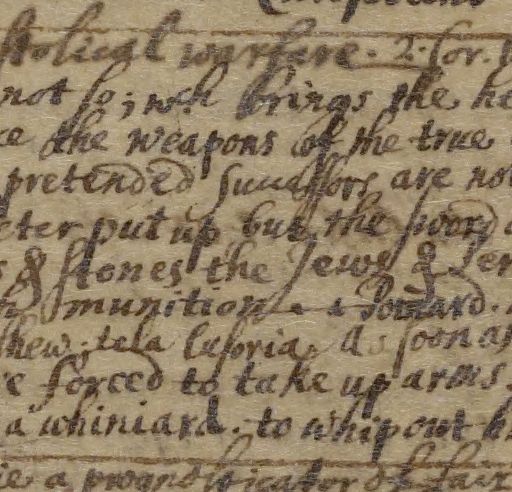 stolical warfare. 2. Cor.
not so; wch brings the he
ce the weapons of the true
pretended successors are not
eter put up but the sword
s & stones the Jews &
munition + a Poinard.
thew. tela lusoria. As soon as
e forced to take up arms.
a whiniard. to whip out h
ie a